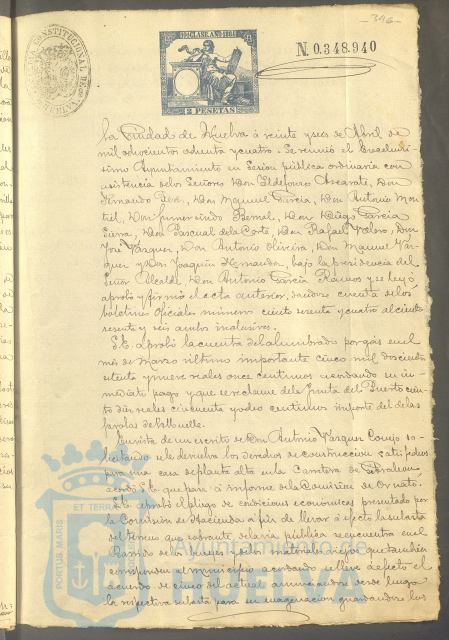 346
CONSTITUCIONAL DE
CLASE AÑO 1884
2 PESETAS
N.0.348.940
la Ciudad de Huelva á veinte y seis de Abril de
mil ochocientos ochenta y cuatro. Se reunió el Excelentí-
simo Ayuntamiento en Sesion pública ordinaria con
asistencia de los Señores Don Ildefonso Don
Fernando Don Manuel García, Don Antonio Mon-
tiel, Don Gumersindo Bernal, Don Diego García
Sierra, Don Pascual de la Corte, Don Rafael Don
José Vázquez, Don Antonio Oliveira, Don Manuel Váz-
quez y Don Joaquin Hernandez, bajo la presidencia del
Señor Alcalde Don Antonio García Ramos y se leyó
aprobó y firmó el acta anterior, dandose cuenta de los
boletines oficiales número ciento sesenta y cuatro al ciento
sesenta y seis ambos inclusives.
S.E. aprobó la cuenta del alumbrado por gas en el
mes de Marzo último importante cinco mil doscientos
setenta y nueve reales once centimos acordando su in-
mediato pago y que se reclame de la Junta del Puerto cien-
to diez reales cincuenta y ocho centimos importe del de las
farolas del Muelle.
En vista de un escrito de Don Antonio Vázquez so-
licitando se le devuelva los derechos de construccion
para una casa de planta alta en la Carretera de
acordó S.E. que pase á informe de la Comision de Ornato.
S.E. aprobó el pliego de condiciones economicas presentado por
la Comision de Hacienda á fin de llevar á efecto la subasta
del terreno que sobrante de la via pública se encuentra en el
Barrio de y de los materiales viejos que tambien
corresponden al municipio acordando se lleve á efecto el
acuerdo de cinco del actual anunciandose desde luego
la respectiva subasta para su enagenacion guardandose las
PORTUS MARIS
ET TERRAE
Ayuntamiento de
HUELVA